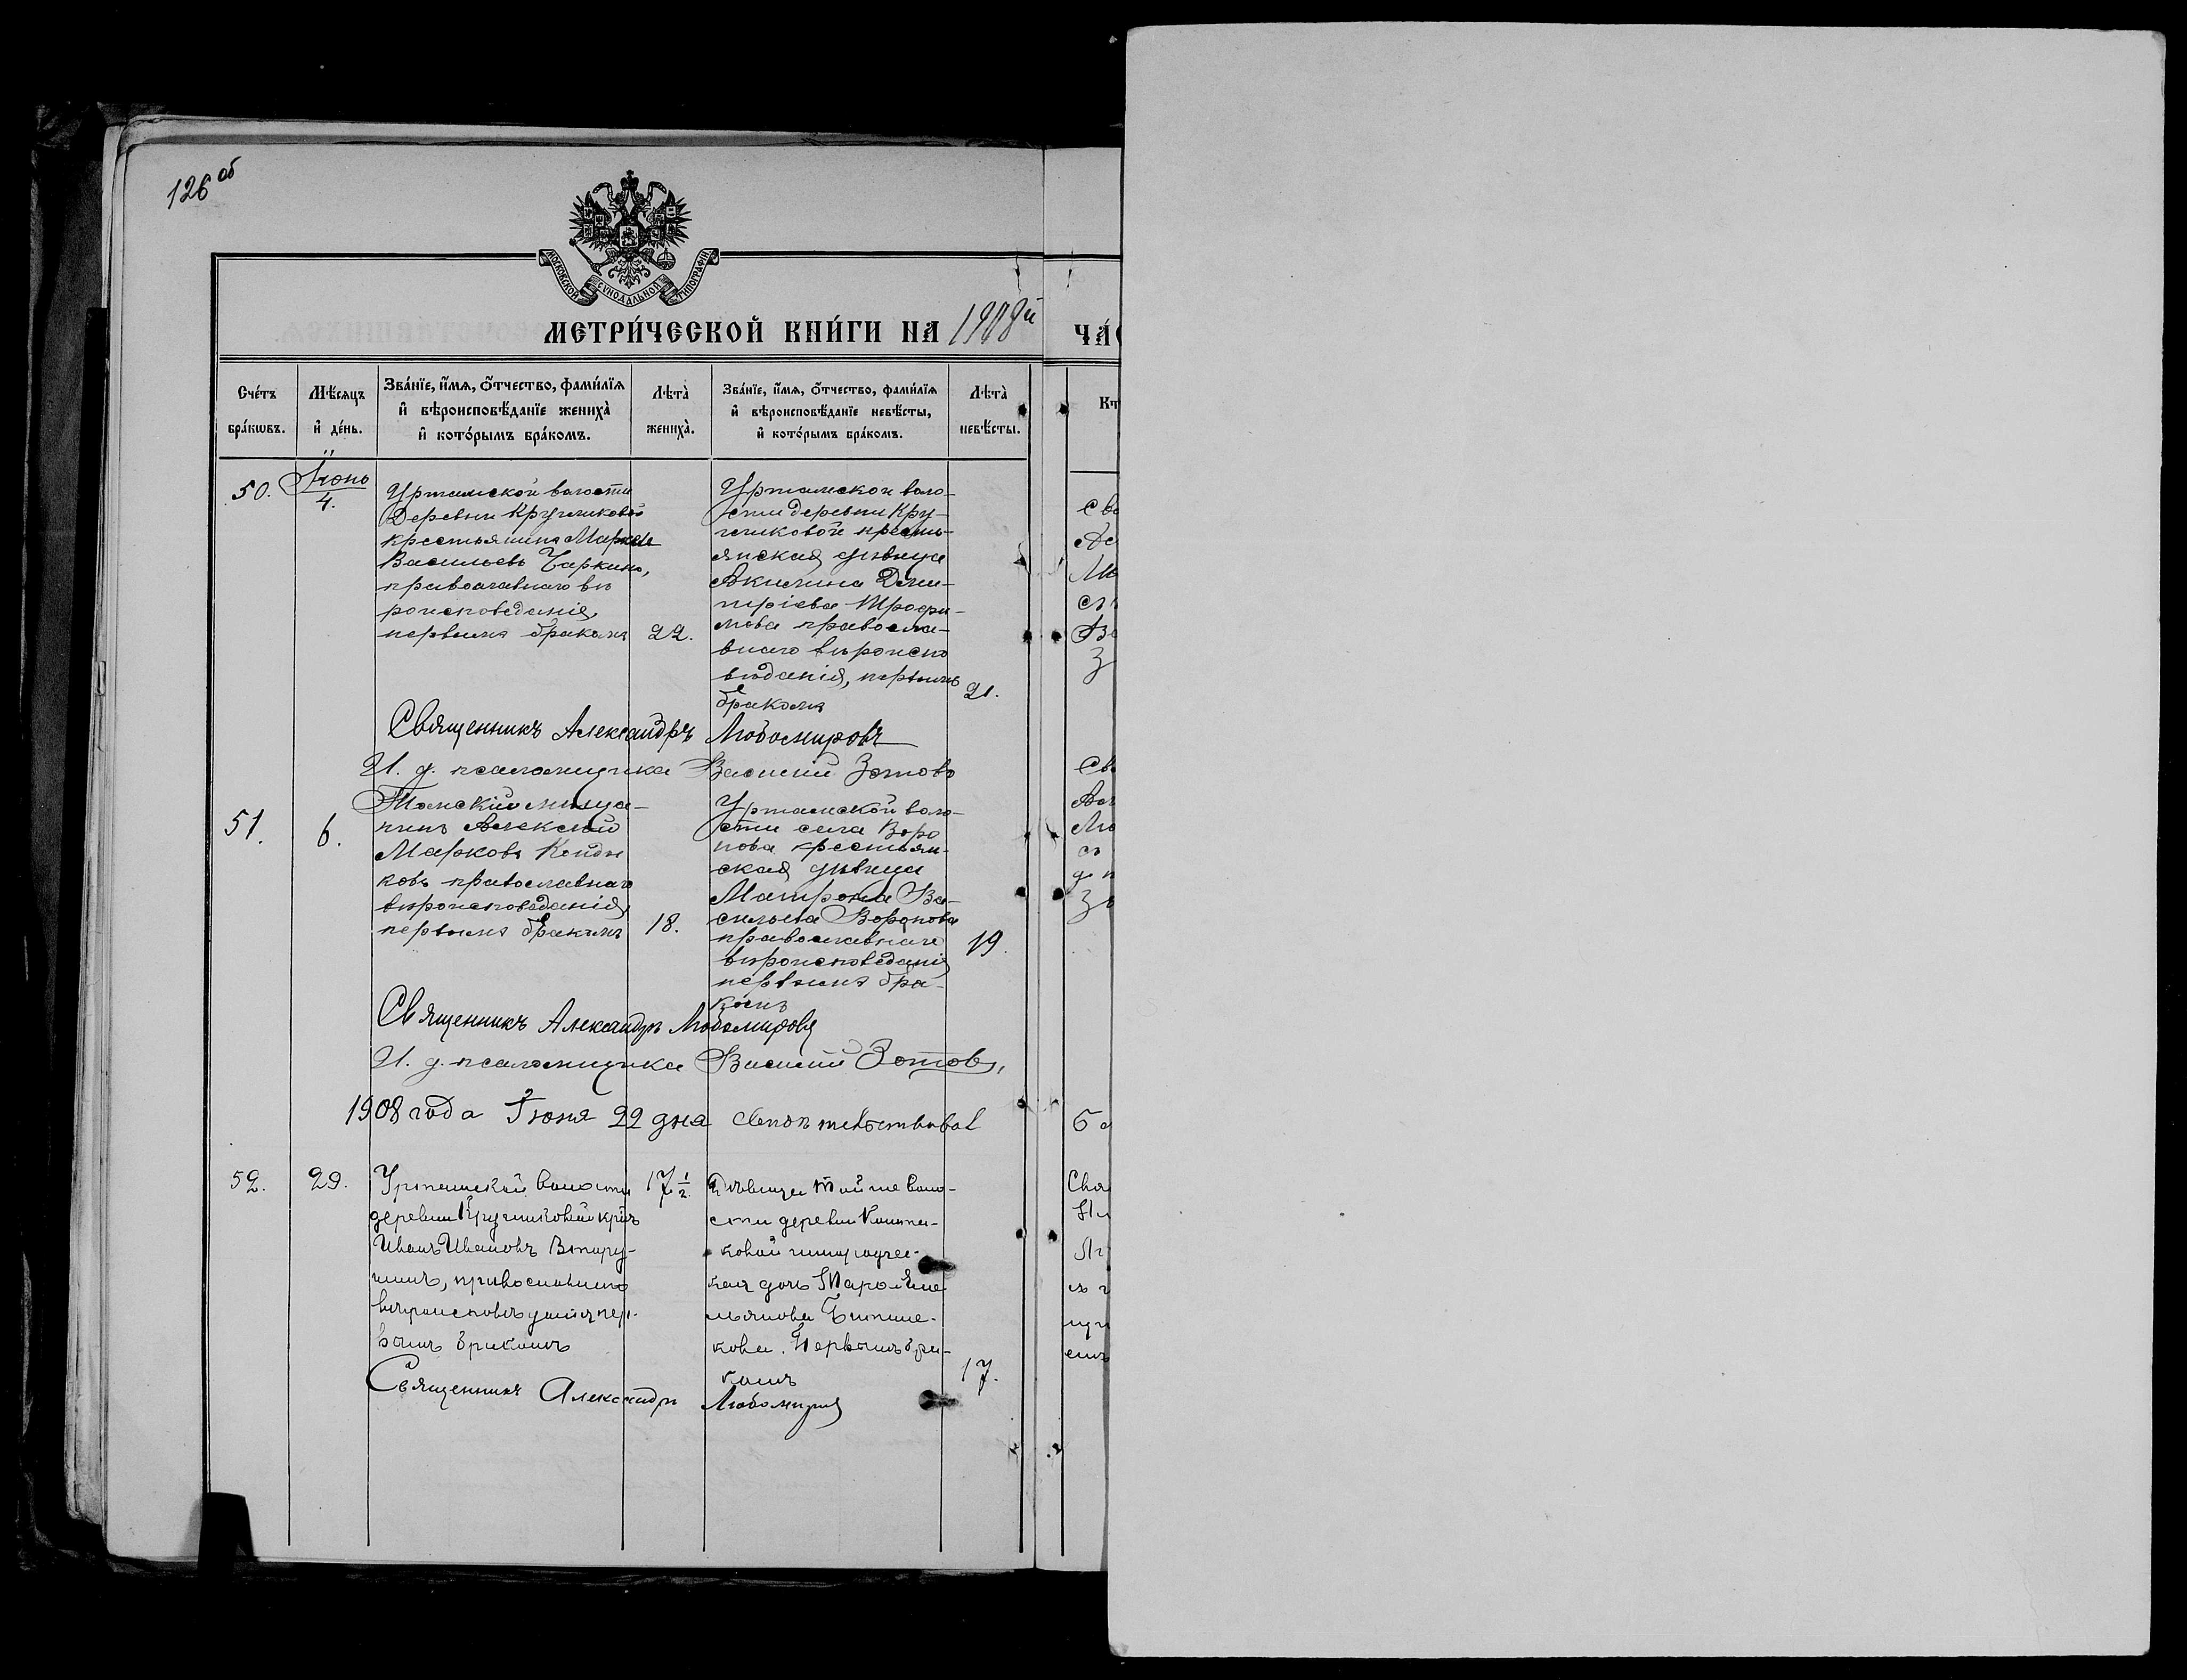 126 об
МОСКОВСКОЙ СѴНОДАЛЬНОЙ ТИПОГРАФІИ
МЕТРИ́ЧЕСКОЙ КНИ́ГИ НА 1908й
ЧА́С
Сче́тъ бра́кѡвъ.
Мѣ́сяцъ и҆ де́нь.
Зва́нїе, и҆́мѧ, ѻ҆́тчество, фами́лїѧ
и҆ вѣроисповѣ́данїе жениха̀
и҆ кото́рымъ бра́комъ.
Лѣта̀ жениха̀.
Зва́нїе, и҆́мѧ, ѻ҆́тчество, фами́лїѧ
и҆ вѣроисповѣ́данїе невѣ́сты,
и҆ кото́рымъ бра́комъ.
Лѣта̀ невѣ́сты.
Кт
50.
Іюнь
4.
Уртамской волости
Деревни Кругликовой
крестьянинъ
Васильевъ Чаркинъ,
православнаго вѣ
роисповеданія,
первымъ бракомъ
22.
Уртамской воло-
сти деревни Кру-
гликовой кресть-
янская дѣвица
Акилина Дми-
тріева Трофи-
мова правосла-
внаго вѣроиспо
вѣданія, первымъ
бракомъ
21.
Священникъ Александръ Любомировъ
И. д. псаломщика Василій Зотовъ
51.
6.
Томскій мѣща-
нинъ Алексѣй
Марковъ
ковъ православнаго
вѣроисповеданія,
первымъ бракомъ
18.
Уртамской воло-
сти села Воро
нова крестьян-
ская дѣвица
Матрона Ва-
сильева Воронова
православнаго
вѣроисповеданія
первымъ бра-
комъ
19.
Священникъ Александръ Любомировъ
И. д. псаломщика Василій Зотовъ,
1908 года Іюня 22 дня
52.
29.
Уртамской волости
деревни Кругликовой кр-нъ
Иванъ Ивановъ Втору-
шинъ, православнаго
вѣроисповѣданія пер-
вымъ бракомъ
17 1/2.
Дѣвица той же воло-
сти деревни
ковой инородчес-
кая дочь Емe-
льянова
кова. Первымъ бра-
комъ
17.
Священникъ Александръ Любомировъ